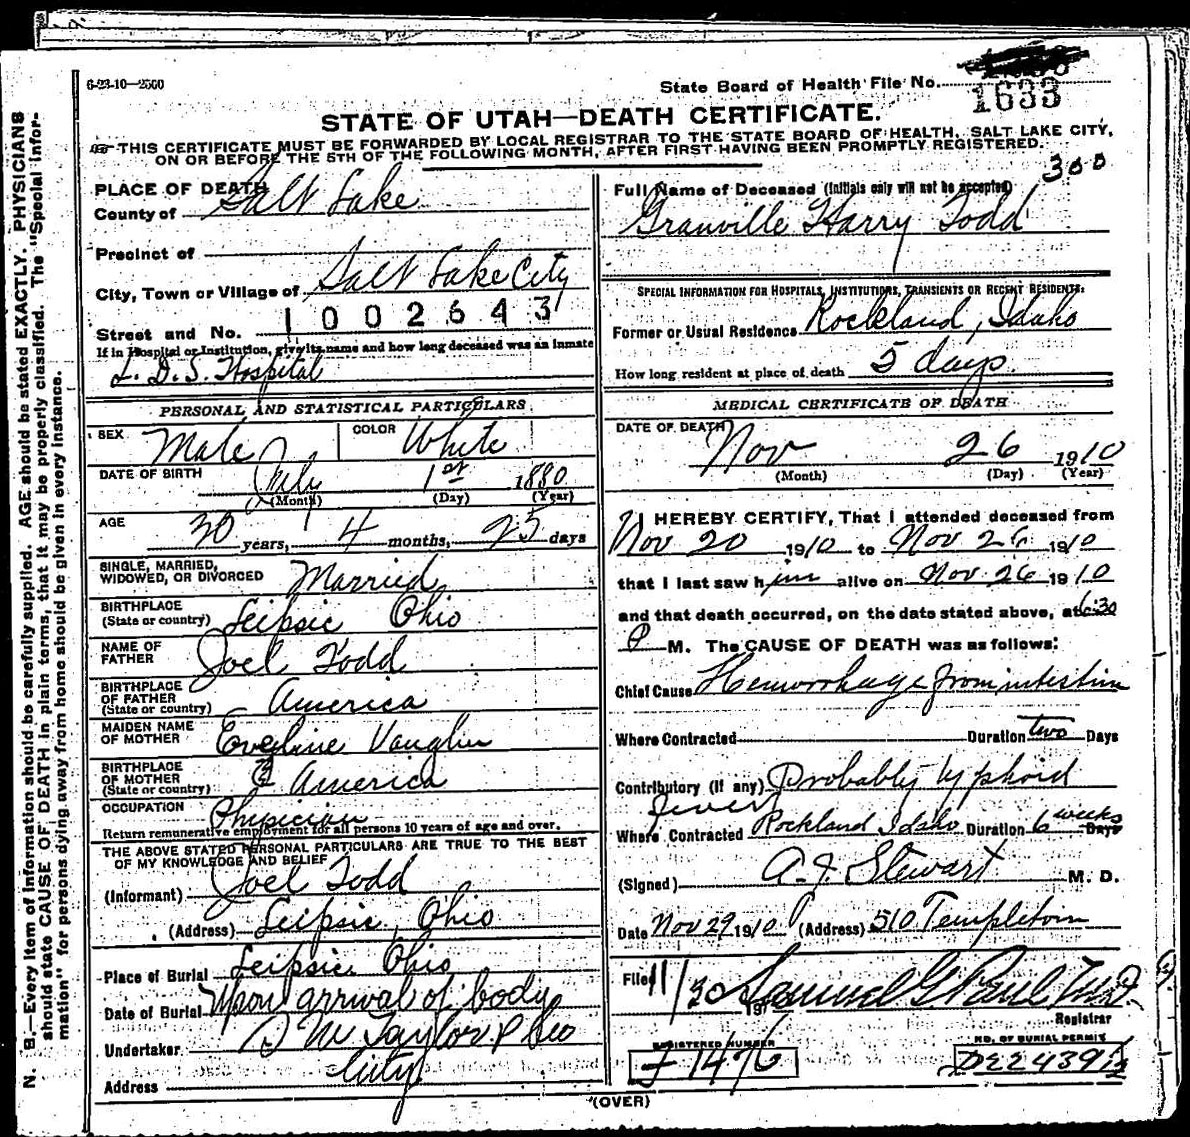 6-23-10—2500
State Board of Health File No.
1633
STATE OF UTAH—DEATH CERTIFICATE.
THIS CERTIFICATE MUST BE FORWARDED BY LOCAL REGISTRAR TO THE STATE BOARD OF HEALTH, SALT LAKE CITY,
ON OR BEFORE THE 5TH OF THE FOLLOWING MONTH, AFTER FIRST HAVING BEEN PROMPTLY REGISTERED.
N. B.—Every item of information should be carefully supplied. AGE should be stated EXACTLY. PHYSICIANS
should state CAUSE OF DEATH in plain terms, that it may be properly classified. The "Special Infor-
mation" for persons dying away from home should be given in every instance.
PLACE OF DEATH
County of Salt Lake
Precinct of
City, Town or Village of Salt Lake City
1002643
Street and No.
If in Hospital or Institution, give its name and how long deceased was an inmate
L. D. S. Hospital
PERSONAL AND STATISTICAL PARTICULARS
SEX Male COLOR White
DATE OF BIRTH July 1st 1880
(Month) (Day) (Year)
AGE 30 years, 4 months, 25 days
SINGLE, MARRIED,
WIDOWED, OR DIVORCED Married
BIRTHPLACE
(State or country) Leipsic Ohio
NAME OF
FATHER Joel Todd
BIRTHPLACE
OF FATHER
(State or country) America
MAIDEN NAME
OF MOTHER Eveline Vaughn
BIRTHPLACE
OF MOTHER
(State or country) America
OCCUPATION Physician
Return remunerative employment for all persons 10 years of age and over.
THE ABOVE STATED PERSONAL PARTICULARS ARE TRUE TO THE BEST
OF MY KNOWLEDGE AND BELIEF
(Informant) Joel Todd
(Address) Leipsic, Ohio
Place of Burial Leipsic Ohio
Date of Burial Upon arrival of body
Undertaker S M Taylor & Co
Address City
300
Full Name of Deceased (Initials only will not be accepted)
Granville Harry Todd
SPECIAL INFORMATION FOR HOSPITALS, INSTITUTIONS, TRANSIENTS OR RECENT RESIDENTS:
Former or Usual Residence Rockland, Idaho
How long resident at place of death 5 days
MEDICAL CERTIFICATE OF DEATH
DATE OF DEATH
Nov 26 1910
(Month) (Day) (Year)
I HEREBY CERTIFY, That I attended deceased from
Nov 20 1910 to Nov 26 1910
that I last saw him alive on Nov 26 1910
and that death occurred, on the date stated above, at 6:30
P M. The CAUSE OF DEATH was as follows:
Chief Cause Hemorrhage from intestine
Where Contracted Duration two Days
Contributory (if any) Probably typhoid
fever
Where Contracted Rockland Idaho Duration 6 weeks Days
(Signed) A. J. Stewart M. D.
Date Nov 29 1910 (Address) 510 Templeton
Filed 11/30 191 Samuel G Paul M.D.
Registrar
REGISTERED NUMBER
1476
NO. OF BURIAL PERMIT
(OVER)